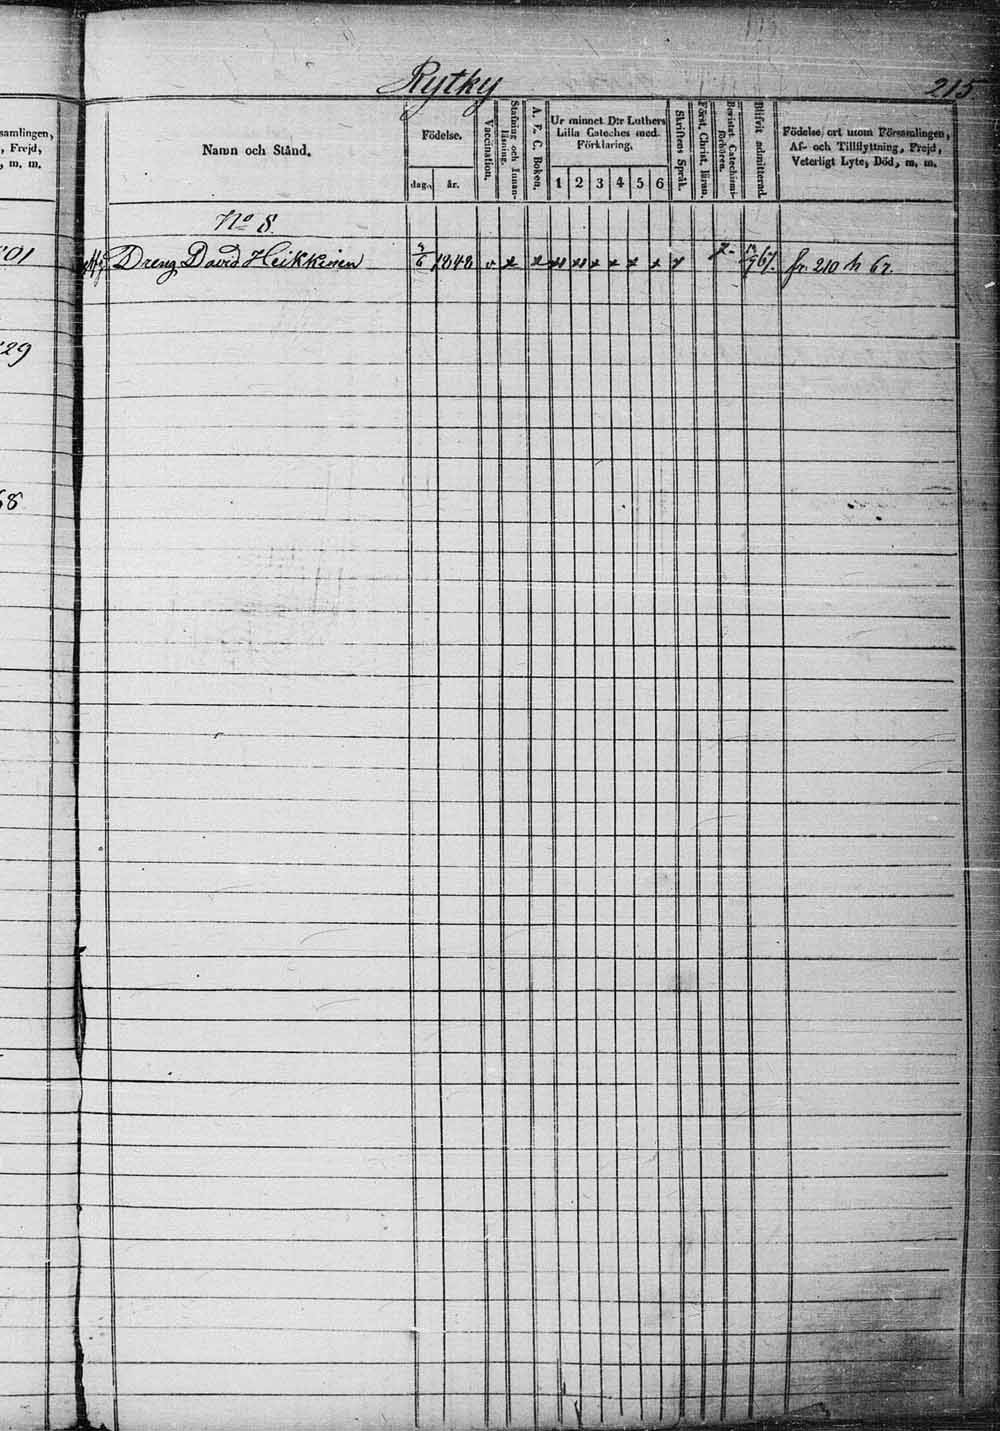 Rytky
215
samlingen,
, Frejd,
, m. m.
Namn och Stånd.
Födelse.
dag.
år.
Vaccination.
Stafning och Innan-
läsning.
A. B. C. Boken.
Ur minnet D:r Luthers
Lilla Cateches med
Förklaring.
1 2 3 4 5 6
Skriftens Språk.
Först. Christ. läran.
Bevistat Catechismi-
förhören.
Blifvit admitterad.
Födelse, ort utom Församlingen,
Af- och Tillflyttning, Frejd,
Veterligt Lyte, Död, m. m.
No 8.
01
Dreng David Heikkinen 1848 v x x x x x x x x 67. fr. 210 h 67.
29
68